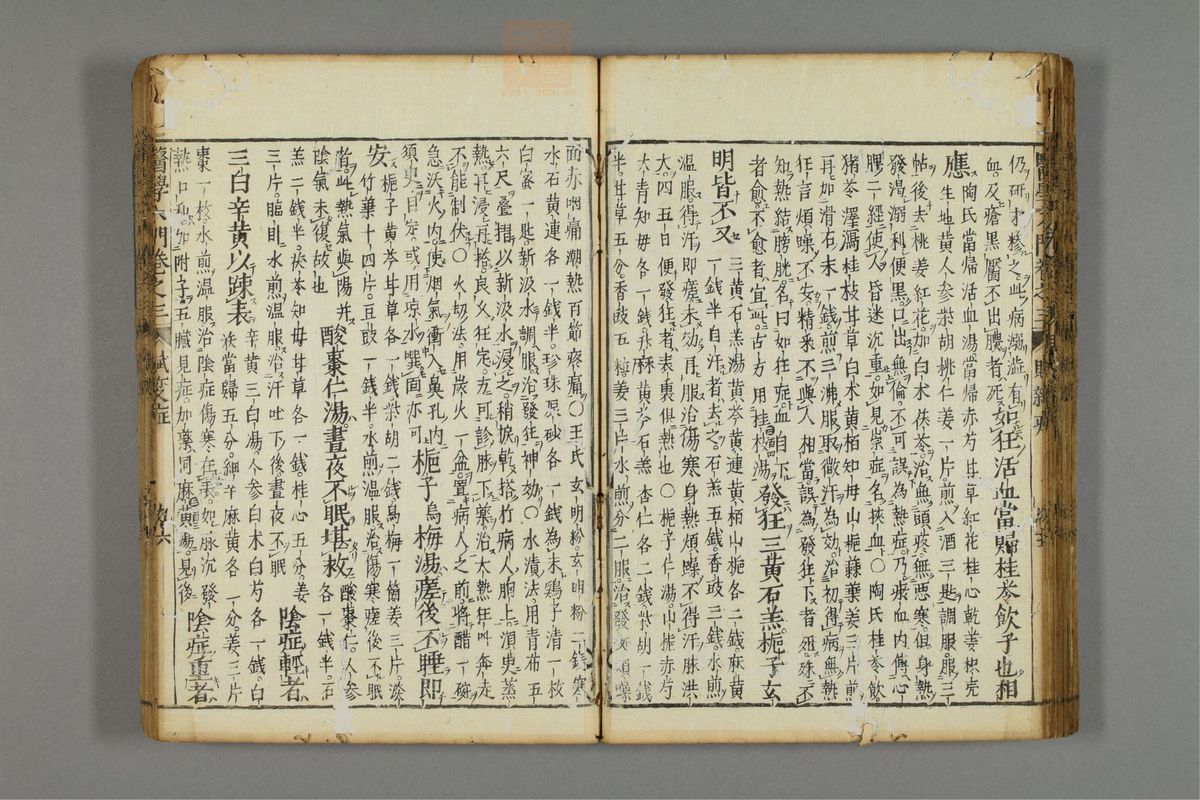 仍研才糝之此病溺澁有
血及瘡黑靨不出膿者死如狂活血當歸桂苓飲子也相
應陶氏當歸活血湯當歸赤芍甘草紅花桂心乾姜枳壳
生地黃人參柴胡桃仁姜一片煎入酒三匙調服服三
帖後去桃姜紅花加白术茯苓治無頭疼無惡寒但身熱
發渴溺利便黑口出無倫不可誤為熱症乃瘀血內傳心
脾二經使人昏迷沉重如見祟症名挾血○陶氏桂苓飲
猪苓澤瀉桂枝甘草白术黃栢知母山梔蘇葉姜三片煎
再加滑石末一錢煎三沸服取微汗為効治初得病無熱
狂言煩躁不安精采不與人相當誤為發狂下者殂殊不
知熱結膀胱名曰如狂症血自下
者愈不愈者宜此古方用桂枝湯發狂三黃石羔梔子玄
明皆不又三黃石羔湯黃芩黃連黃栢山梔各二錢麻黃
一錢半自汗者去之石羔五錢香豉三錢水煎
溫服得汗即瘥未効再服治傷寒身熱煩躁不得汗脉洪
大四五日便發狂者表裏俱熱也○梔子仁湯山梔赤芍
大青知母各一錢升麻黃芩石羔杏仁各二錢柴胡一錢
半甘草五分香豉五粒姜三片水煎分二服治發狂煩噪
面赤咽痛潮熱百節疼痛○王氏玄明粉玄明粉二錢寒
水石黃連各一錢半珍珠辰砂各一錢為末鷄子清一枚
白蜜一匙新汲水調服治發狂神効○水漬法用青布五
六尺叠摺以新汲水浸之稍捩乾搭竹病人胸上須臾蒸
熱再浸再搭良久狂定方可診脉下藥治大熱狂叫奔走
不能制伏○火劫法用炭火一盆置病人之前將醋一碗
急沃火內使烟氣衝入鼻孔內
須臾自定或用凉水噀面亦可梔子烏梅湯瘥後不睡即
安梔子黃芩甘草各一錢柴胡二錢烏梅一箇姜三片淡
竹葉十四片豆豉一錢半水煎溫服治傷寒瘥後不眠
者此熱氣與陽幷
陰氣未復故也酸棗仁湯晝夜不眠堪救酸棗仁人參
各一錢半石
羔二錢半茯苓知母甘草各一錢桂心五分姜
三片臨臥水煎溫服治汗吐下後晝夜不眠陰症輕者
三白辛黃以踈表辛黃三白湯人參白术白芍各一錢白
茯當歸五分細辛麻黃各一分姜三片
棗一枚水煎溫服治陰症傷寒在表如脉沉發
熱口和加附子五臟見症如藥同麻黃湯見後陰症重者
醫學六門卷之三